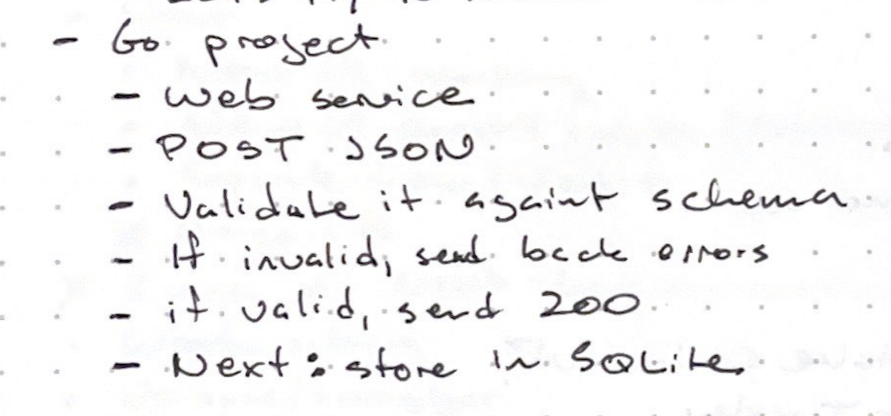 - Go project
- Web service
- POST JSON
- Validate it againt schema
- If invalid, send back errors
- if valid, send 200
- Next: store in SQLite